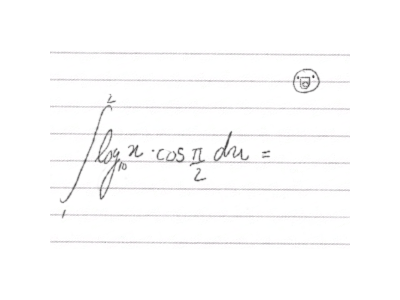 ∫₁² log₁₀ x · cos π/2 dx =